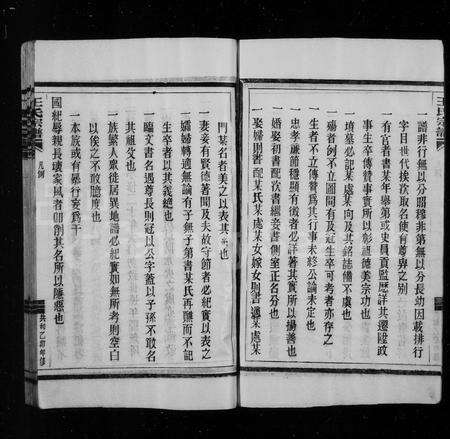 王氏宗譜
譜非行無以分昭穆非第無以分長幼因載排行
字目世代挨次取名使有尊卑之別
一有官者書某年舉第或吏員貢監歷詳其遷陞政
事生卒傳贊事實所以彰祖德美宗功也
一墳墓必記某處某向及其銘誌備不虞也
一殤者例不立圖間有及冠生卒可考者亦存之
一生者不立傳贊爲其行事未終公論未定也
一忠孝廉節穩顯有徵者必詳著其實所以揚善也
一婚娶初書配次書繼妾書側室正名分也
一娶婦則書配某氏某處某女嫁女則書適某處某
門某名者美之以表其 也
一妻妾有賢德著聞及夫故守節者必紀實以表之
一孀婦轉適無論有子無子第書某氏再醮而不記
生卒者以其義絕也
一臨文書名遇尊長則冠以公字蓋以子孫不敢名
其祖父也
一族繁人衆徙居異地譜必紀實如無所考則空白
以俟之不敢臆度也
一本族或有暴行妄爲干
國紀辱親長壞家風者卽削其名所以懲惡也
王氏宗譜
凡例